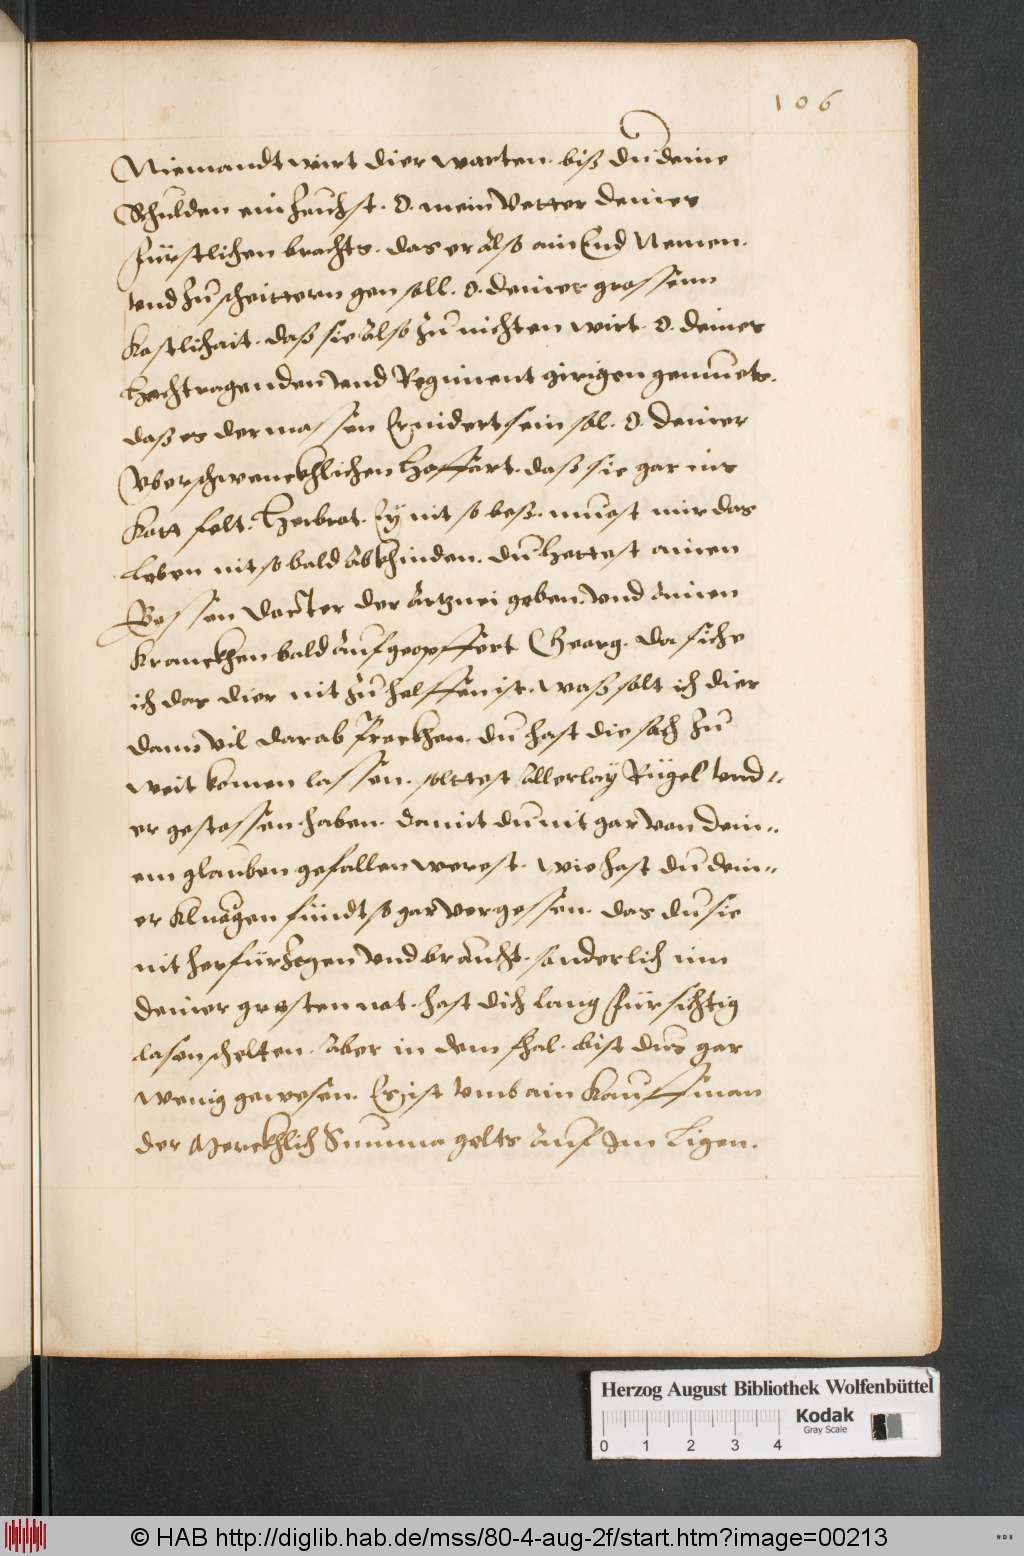 106
Niemandt wirt dier warten. biß du deine
Schulden einzeuchst. O. mein Vetter deines
fürstlichen brachts. das er also ain End Nemen.
vnd zu scheittern gen soll. O. deiner grossenn
kostlichait. daß sie also zu nichten wirt. O. deines
Hochtragenden vnd Regiment girigen gemuets.
daß es dermassen Ernidert sein sol. O. deiner
Vberschwenckhlichen Hoffart. daß sie gar ins
Kott felt. Herbrot. Ey nit so beß. muest mir das
Leben nit so bald abkhinden. du hettest ainen
Bessen docter der Artznei geben. vnd ainen
Kranckhen bald aufgeopffert Georg. Da siche
ich das dier nit zu helffen ist. waß solt ich dier
dann vil darab streckhen. du hast die sach zu
weit komen lassen. soltest allerlay Rügel vnd-
er gestossen haben. damit du nit gar von dein-
em glauben gefallen werest. wie hast du dein-
er kluegen fündt so gar vergessen. das du sie
nit herfürzogen vnd braucht. sonderlich inn
deiner grosten not. hast dich lang fürsichtig
lasen schelten. aber in dem fhal. bist dus gar
wenig gewesen. Es ist vmb ain Kauffman
der Merckhlich Summa gelts auf Im Ligen.
Herzog August Bibliothek Wolfenbüttel
Kodak
Gray Scale
0 1 2 3 4
© HAB http://diglib.hab.de/mss/80-4-aug-2f/start.htm?image=00213